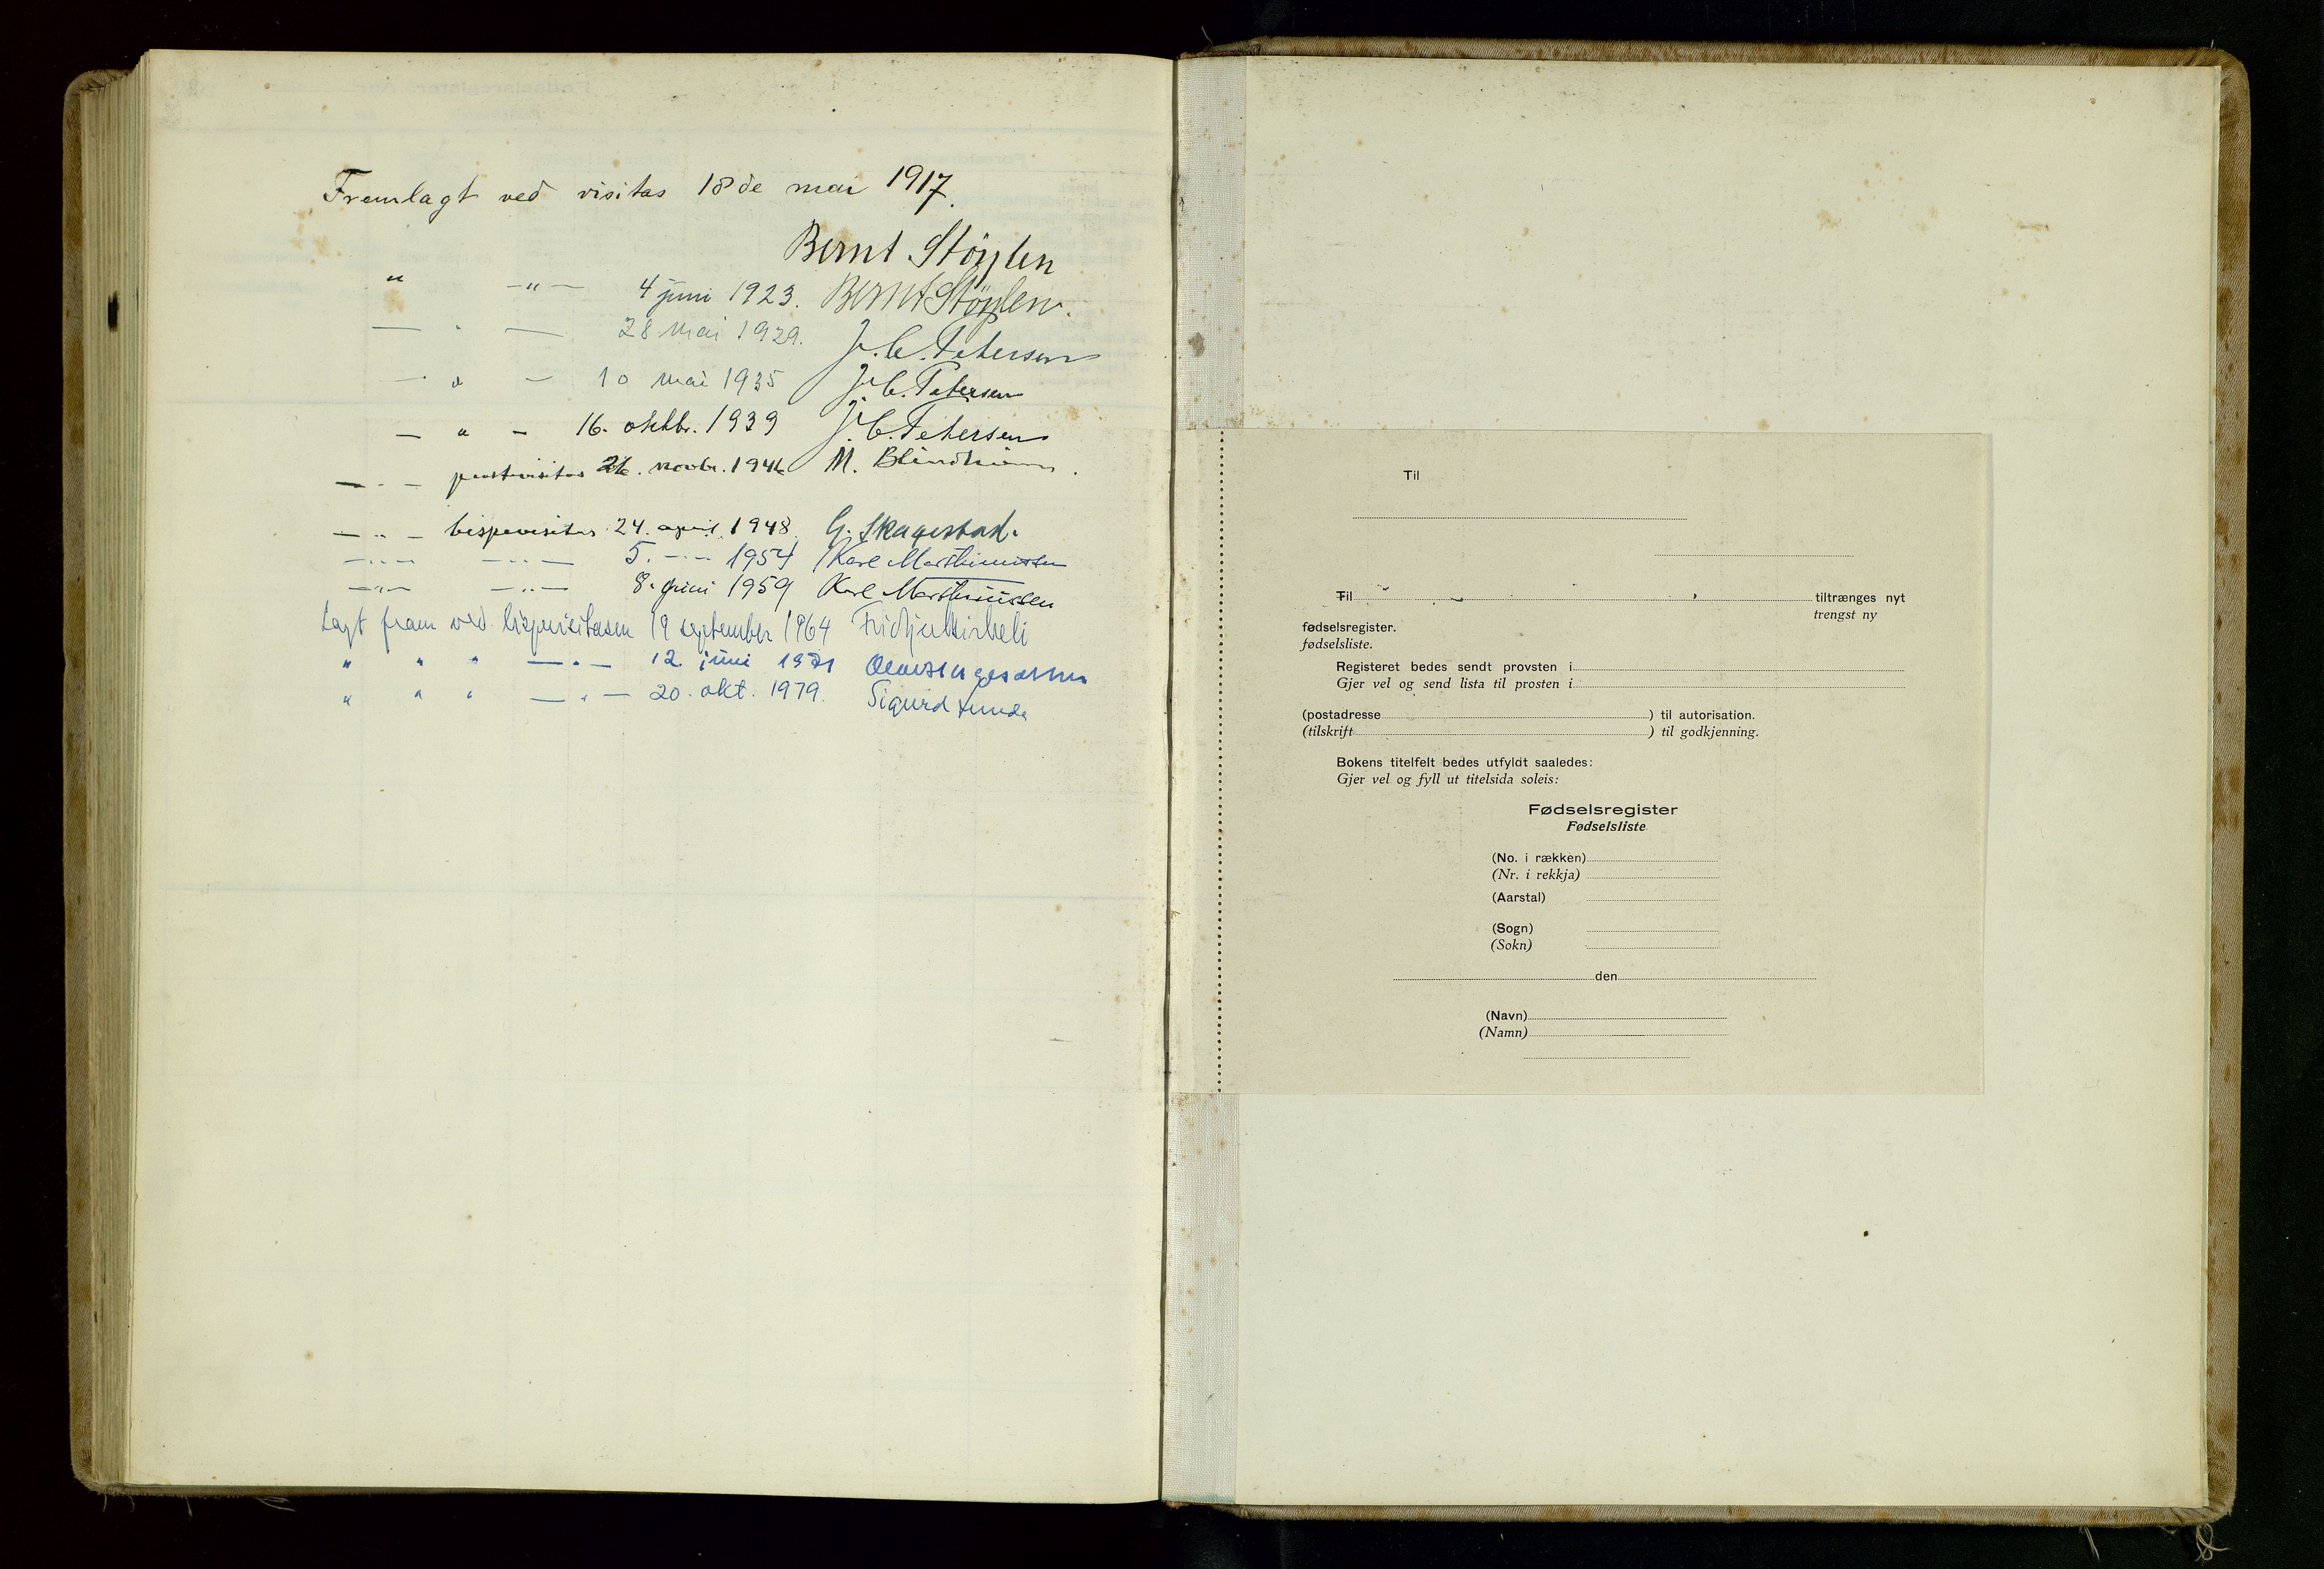 Fremlagt ved visitas 18de mai 1917.
Bernt Støylen
" —"— 4 juni 1923. Bernt Støylen.
— " — 28 mai 1929. J. C. Petersen
— " — 10 mai 1935 J. C. Petersen
— " — 16. oktbr. 1939 J. C. Petersen
— " — prostevisitas 26. novbr. 1946 M. Blindheim.
— " — bispevisitas 24. april 1948. G. Skagestad.
—"— —"— 5. —"— 1954 Kaare Marthinussen
—"— —"— 8. juni 1959 Karl Marthinussen
Lagt fram ved bispevisitasen 19 september 1964 Fridtjov Birkeli
" " " —"— 12. juni 1971
" " " —"— 20. okt. 1979. Sigurd Lunde
Til
Til tiltrænges nyt
trengst ny
fødselsregister.
fødselsliste.
Registeret bedes sendt provsten i
Gjer vel og send lista til prosten i
(postadresse ) til autorisation.
(tilskrift ) til godkjenning.
Bokens titelfelt bedes utfyldt saaledes:
Gjer vel og fyll ut titelsida soleis:
Fødselsregister
Fødselsliste
(No. i rækken)
(Nr. i rekkja)
(Aarstal)
(Sogn)
(Sokn)
den
(Navn)
(Namn)